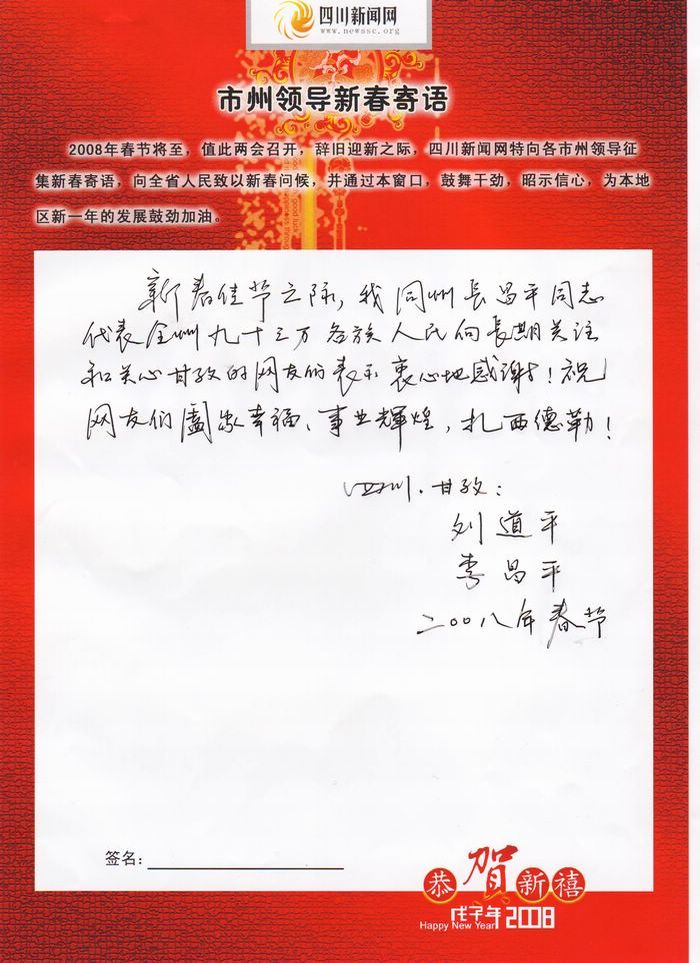 四川新闻网
www.newssc.org
市州领导新春寄语
2008年春节将至，值此两会召开，辞旧迎新之际，四川新闻网特向各市州领导征
集新春寄语，向全省人民致以新春问候，并通过本窗口，鼓舞干劲，昭示信心，为本地
区新一年的发展鼓劲加油。
新春佳节之际，我同州长昌平同志
代表全州九十三万各族人民向长期关注
和关心甘孜的网友们表示衷心地感谢！祝
网友们阖家幸福、事业輝煌，扎西德勒！
四川·甘孜：
刘道平
李昌平
二〇〇八年春节
签名：
恭贺新禧
戊子年 2008
Happy New Year